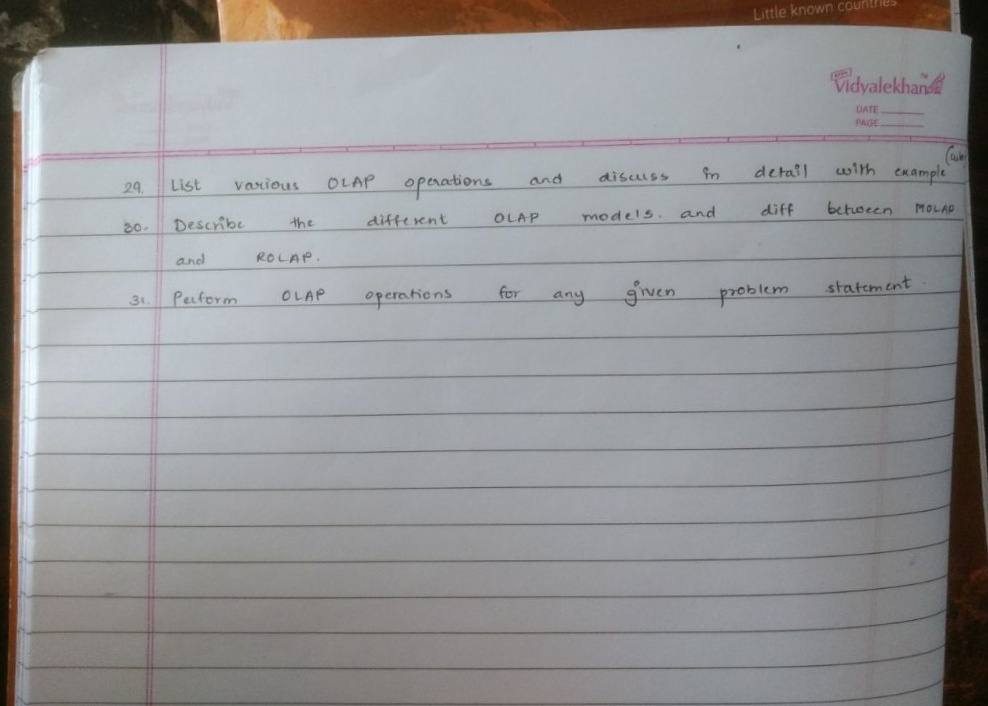 Little known countries
Vidyalekhan
DATE
PAGE
29. List various OLAP operations and discuss in detail with example
30. Describe the different OLAP models. and diff between MOLAP
and ROLAP.
31. Perform OLAP operations for any given problem statement.